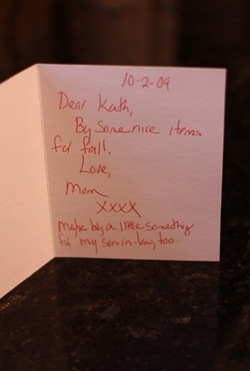 10-2-09
Dear Kath,
By some nice items
for fall.
Love,
Mom
XXXX
Maybe buy a little something
for my son-in-law, too.